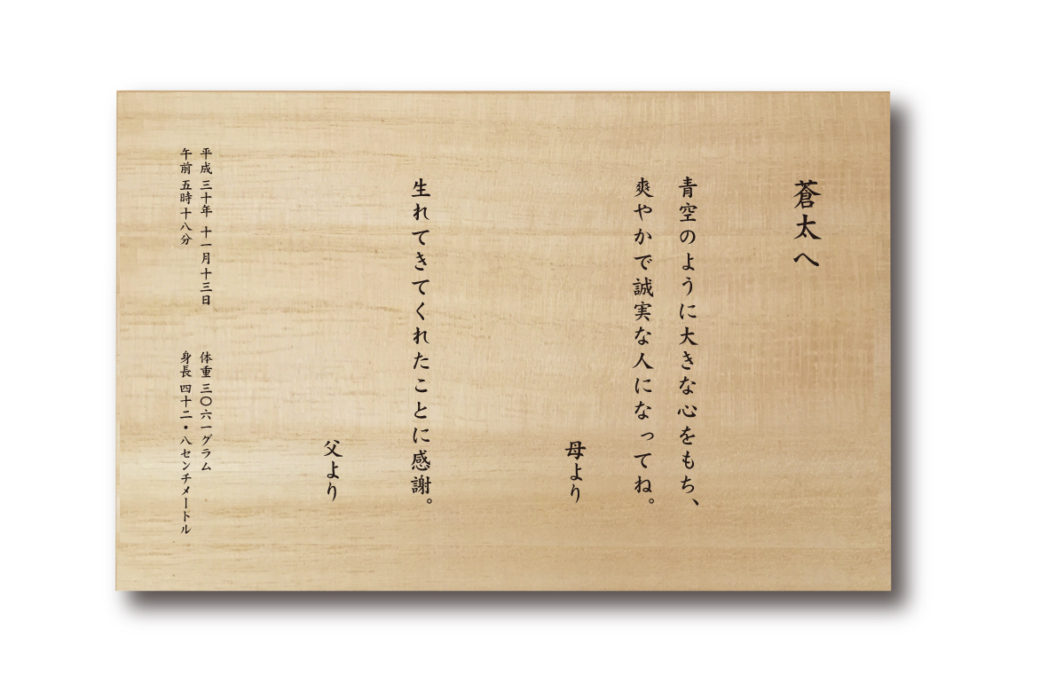 蒼太へ
青空のように大きな心をもち、
爽やかで誠実な人になってね。
母より
生れてきてくれたことに感謝。
父より
平成 三十年 十一月十三日
午前 五時十八分
体重 三〇六一グラム
身長 四十二・八センチメートル